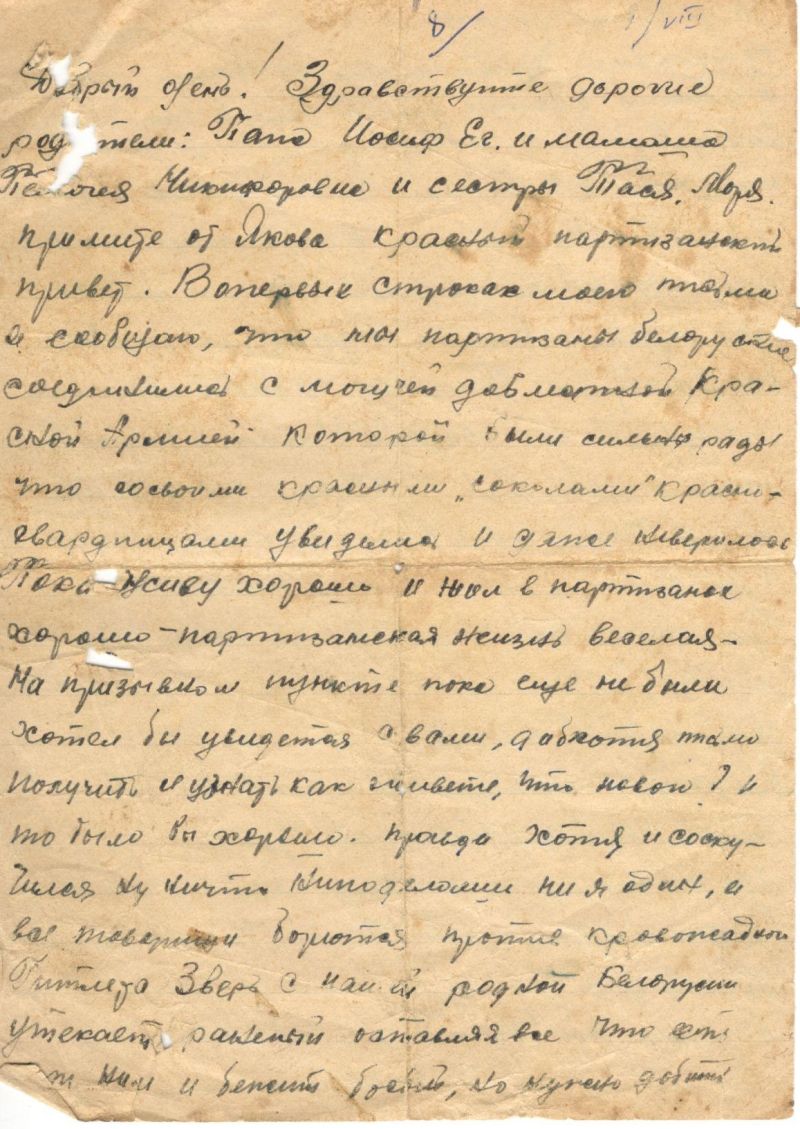 8/ 9/VIII
Добрый день! Здравствуйте дорогие
родители: Папа Иосиф Ег. и мамаша
Никифоровна и сестры Тася, Маря.
примите от Якова красный партизанский
привет. Вопервых строках моего письма
я сообщаю, что мы партизаны белоруссии
соединились с могучей Кра-
сной Армией которой были сильно рады
что сосвоими красными „соколами" красно-
гвардицами увиделись и даже неверилось
Пока живу хорошо и жил в партизанах
хорошо – партизанская жизнь веселая –
На призывном пункте пока еще не были
хотел бы увидется свами, а хотя
получить и узнать как живете, что нового? и
то было бы хорошо. правда хотя и соску-
чился ну ничего ни я один, а
все товарищи борются против кровожадного
Гитлера Зверь с нашей родной Белорусии
утекает раненый оставляя все что есть
ним и бежит босый, но нужно добить